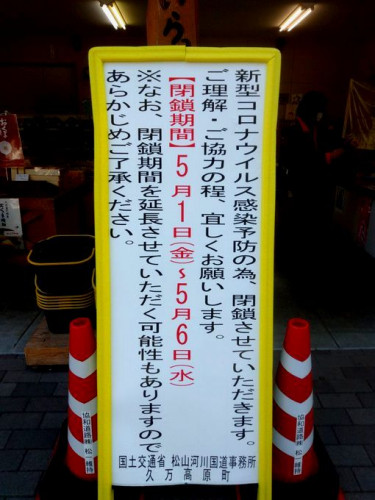 新型コロナウイルス感染予防の為、閉鎖させていただきます。
ご理解・ご協力の程、宜しくお願いします。
【閉鎖期間】5月1日(金)~5月6日(水)
※なお、閉鎖期間を延長させていただく可能性もありますので
あらかじめご了承ください。
国土交通省 松山河川国道事務所
久万高原町
協和道路㈱ 松一維持
協和道路㈱ 松一維持